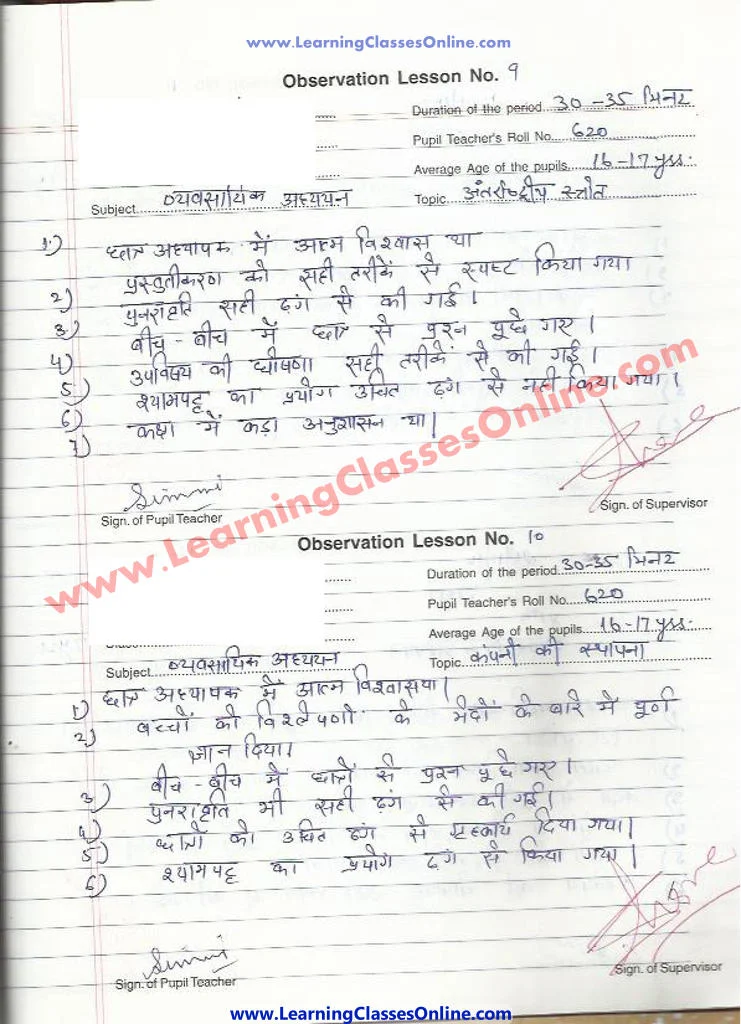 www.LearningClassesOnline.com
Observation Lesson No. 9
Duration of the period 30-35 मिनट
Pupil Teacher's Roll No. 620
Average Age of the pupils 16-17 yrs.
Subject व्यवसायिक अध्ययन Topic अंतर्राष्ट्रीय स्त्रोत
1) छात्र अध्यापक में आत्म विश्वास था
2) प्रस्तुतीकरण को सही तरीकें से स्पष्ट किया गया
3) पुनरावृति सही ढ़ंग से की गई।
4) बीच-बीच में छात्र से प्रश्न पूछे गए।
5) उपविषय की घोषणा सही तरीकें से की गई।
6) श्यामपट्ट का प्रयोग उचित ढ़ंग से नही किया गया।
7) कक्षा में कड़ा अनुशासन था।
Simmi
Sign. of Pupil Teacher Sign. of Supervisor
www.LearningClassesOnline.com
Observation Lesson No. 10
Duration of the period 30-35 मिनट
Pupil Teacher's Roll No. 620
Average Age of the pupils 16-17 yrs.
Subject व्यवसायिक अध्ययन Topic कंपनी की स्थापना
1) छात्र अध्यापक में आत्म विश्वास था।
2) बच्चों को के भेदों के बारे में पूर्ण
ज्ञान दिया।
3) बीच-बीच में छात्रों से प्रश्न पूछे गए।
4) पुनरावृति भी सही ढ़ंग से की गई।
5) छात्रों को उचित ढ़ंग से गृहकार्य दिया गया।
6) श्यामपट्ट का प्रयोग ढ़ंग से किया गया।
Simmi
Sign. of Pupil Teacher Sign. of Supervisor
www.LearningClassesOnline.com